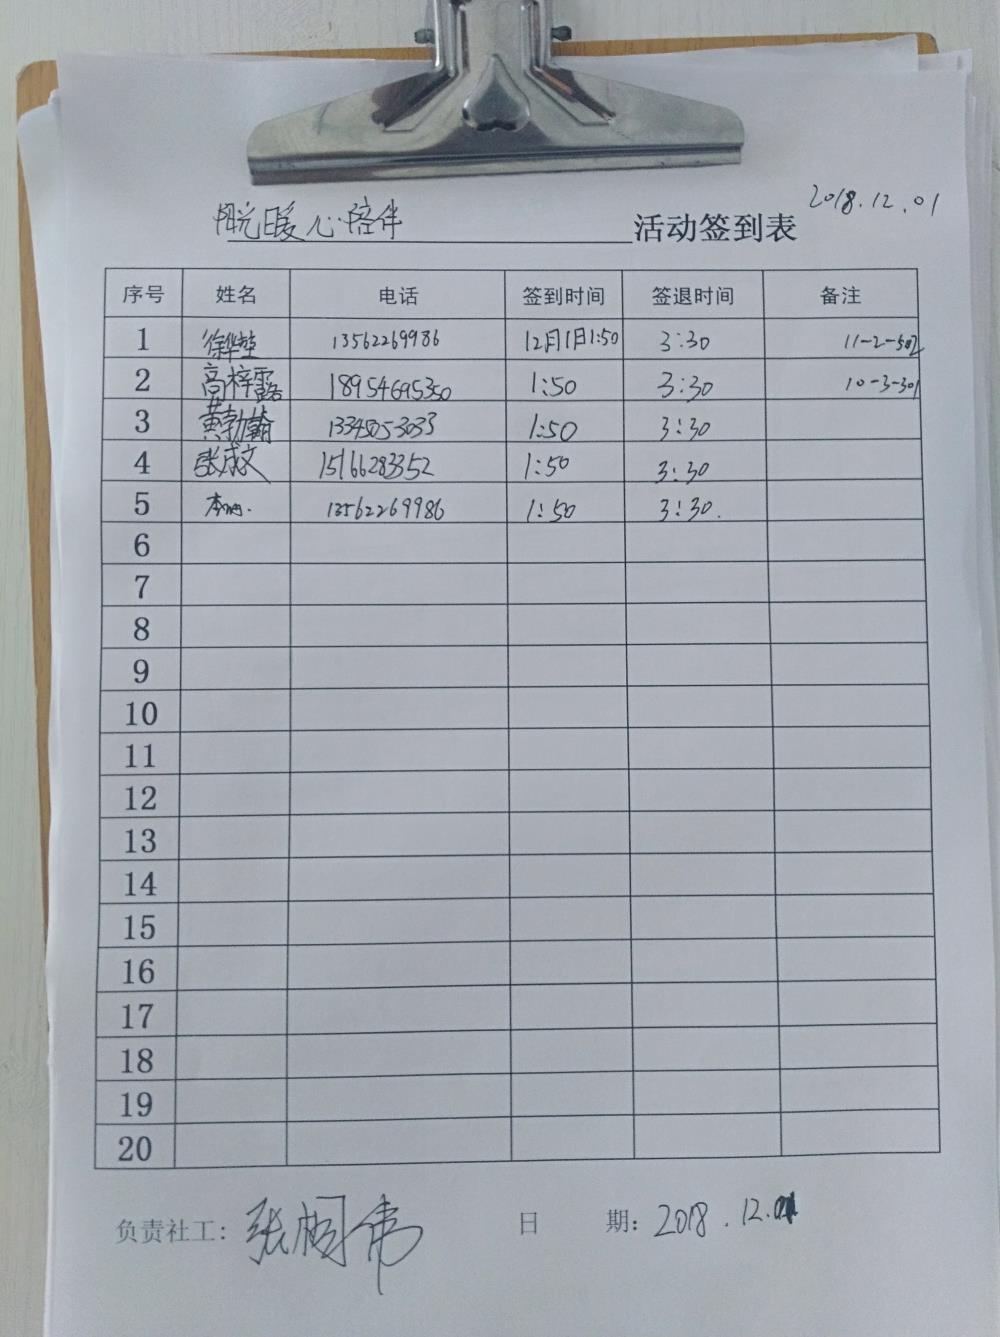 2018.12.01
暖心陪伴 活动签到表
序号 姓名 电话 签到时间 签退时间 备注
1 13562269986 12月1日1:50 3:30 11-2-502
2 高梓露 18954695350 1:50 3:30 10-3-301
3 黄勃翰 13345053033 1:50 3:30
4 张成文 15166283352 1:50 3:30
5 13562269986 1:50 3:30.
6
7
8
9
10
11
12
13
14
15
16
17
18
19
20
负责社工: 张 日 期: 2018.12.01